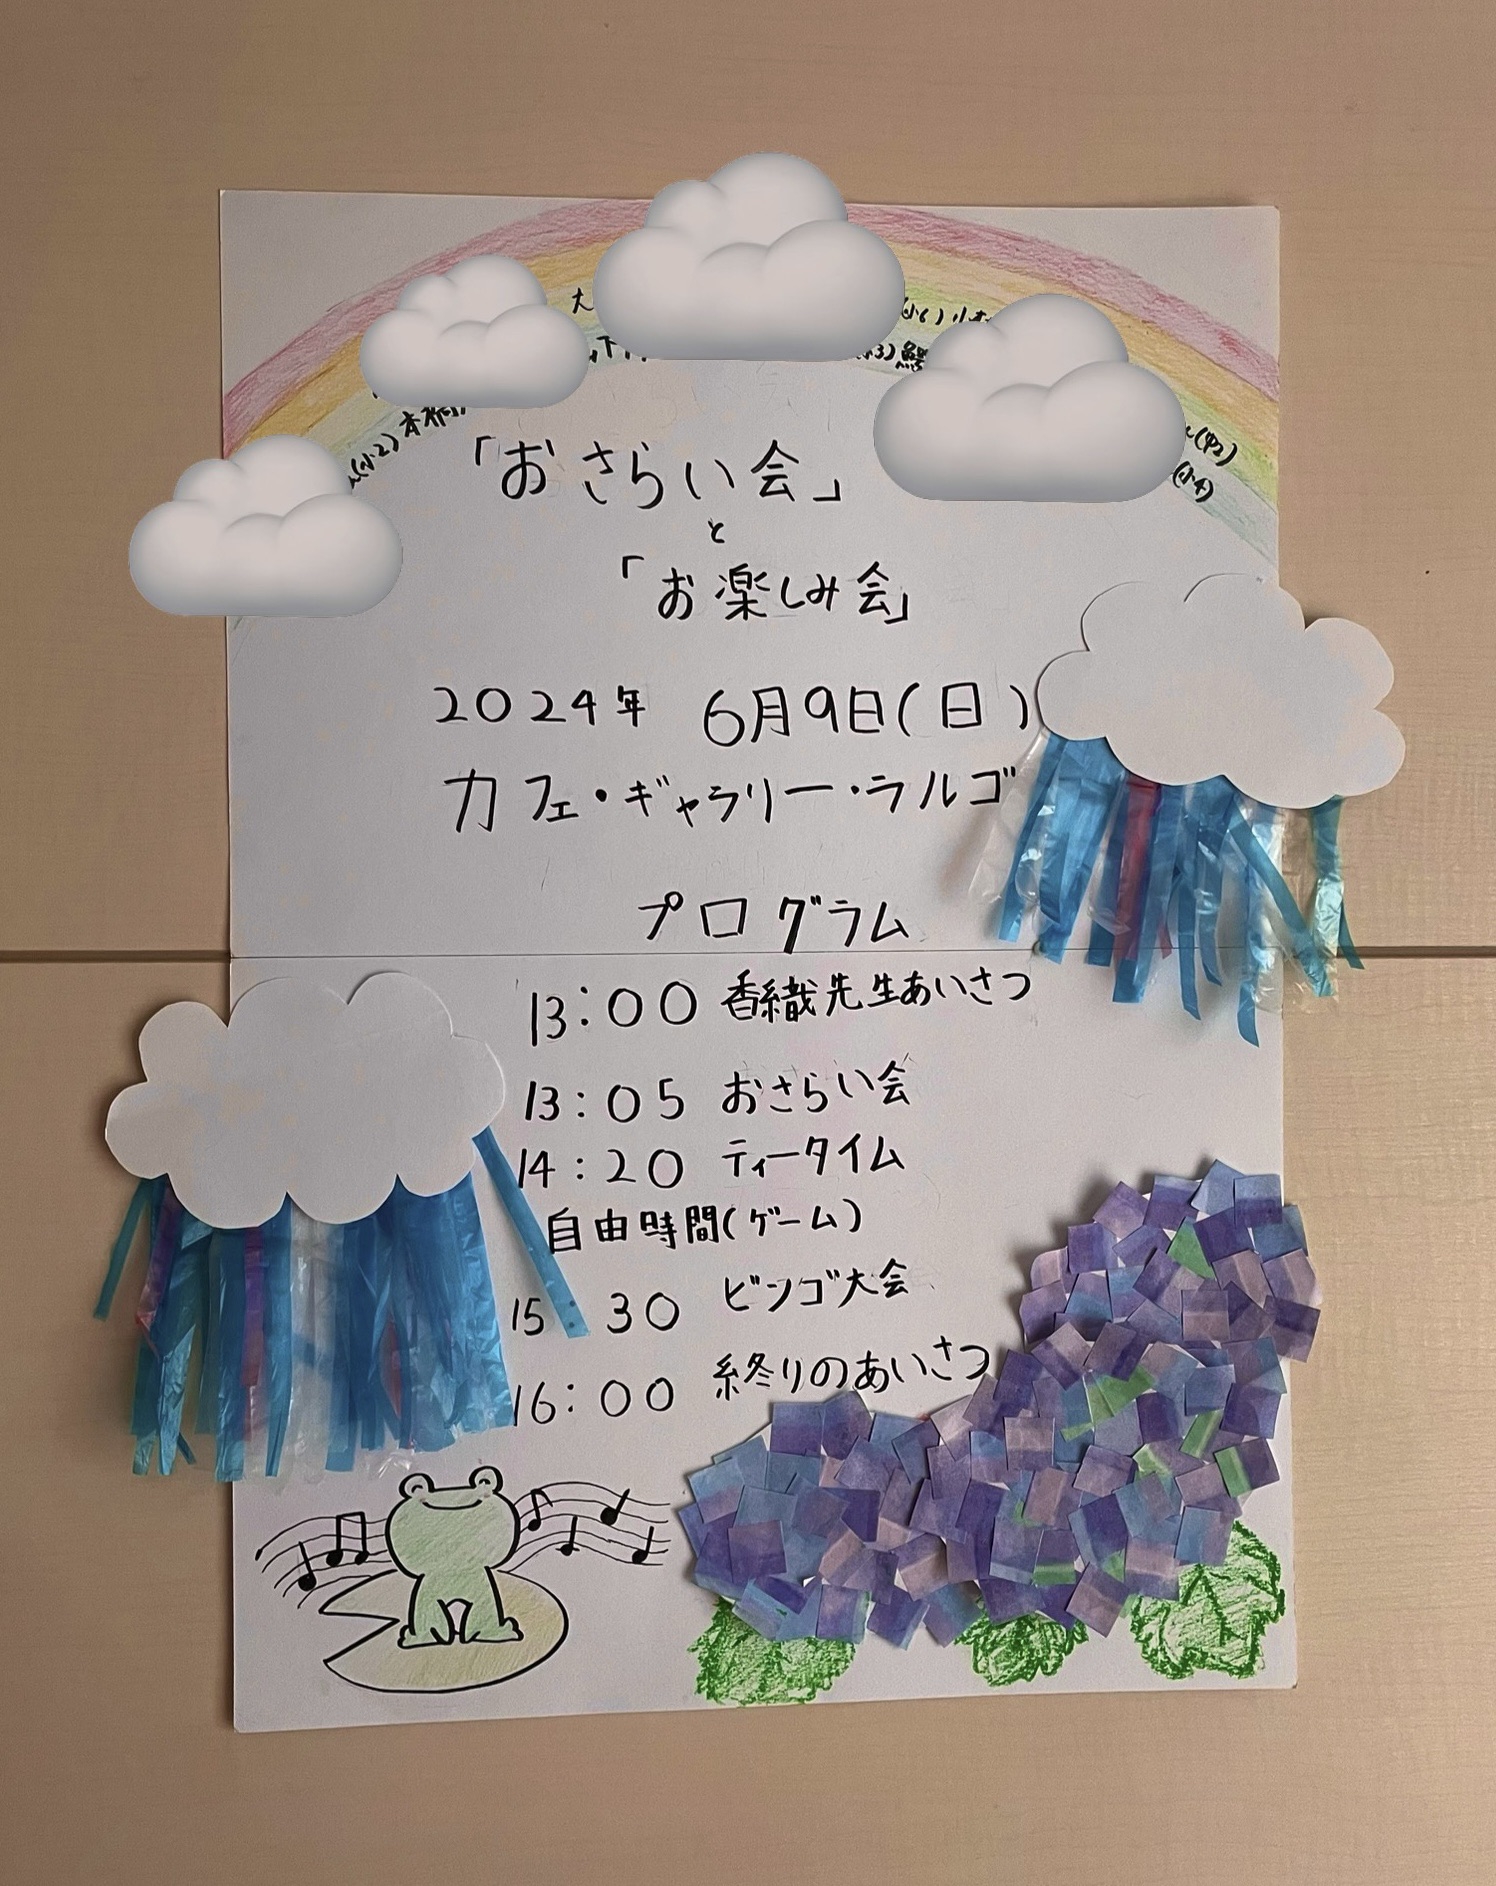 (小6)
(小2)
(中2)
(小4)
「おさらい会」
と
「お楽しみ会」
2024年 6月9日(日)
カフェ・ギャラリー・ラルゴ
プログラム
13:00 香織先生あいさつ
13:05 おさらい会
14:20 ティータイム
自由時間(ゲーム)
15 30 ビンゴ大会
16:00 終りのあいさつ